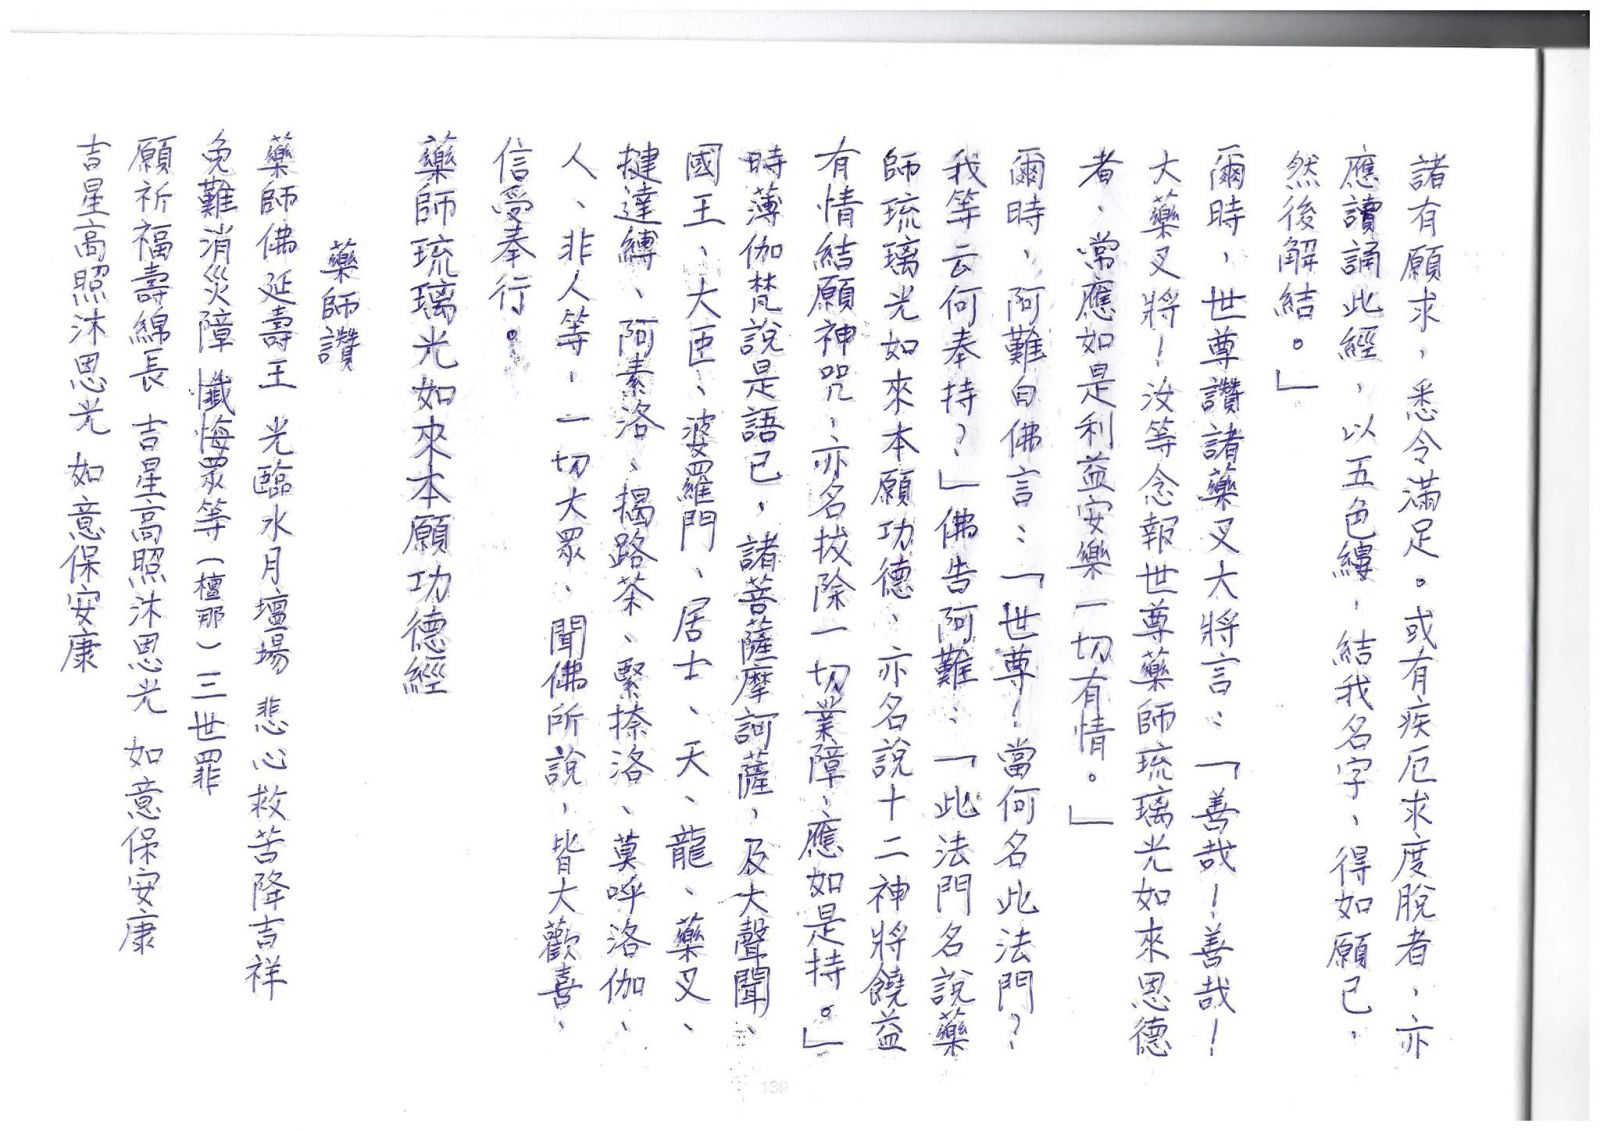 諸有願求，悉令滿足。或有疾厄求度脫者，亦
應讀誦此經，以五色縷，結我名字，得如願已，
然後解結。」
爾時，世尊讚諸藥叉大將言：「善哉！善哉！
大藥叉將！汝等念報世尊藥師琉璃光如來恩德
者，常應如是利益安樂一切有情。」
爾時，阿難白佛言：「世尊！當何名此法門？
我等云何奉持？」佛告阿難：「此法門名說藥
師琉璃光如來本願功德，亦名說十二神將饒益
有情結願神咒，亦名拔除一切業障，應如是持。」
時薄伽梵說是語已，諸菩薩摩訶薩，及大聲聞、
國王、大臣、婆羅門、居士、天、龍、藥叉、
揵達縛、阿素洛、揭路荼、緊捺洛、莫呼洛伽、
人、非人等，一切大眾，聞佛所說，皆大歡喜、
信受奉行。
藥師琉璃光如來本願功德經
藥師讚
藥師佛延壽王 光臨水月壇場 悲心救苦降吉祥
免難消災障 懺悔眾等（檀那）三世罪
願祈福壽綿長 吉星高照沐恩光 如意保安康
吉星高照沐恩光 如意保安康
139